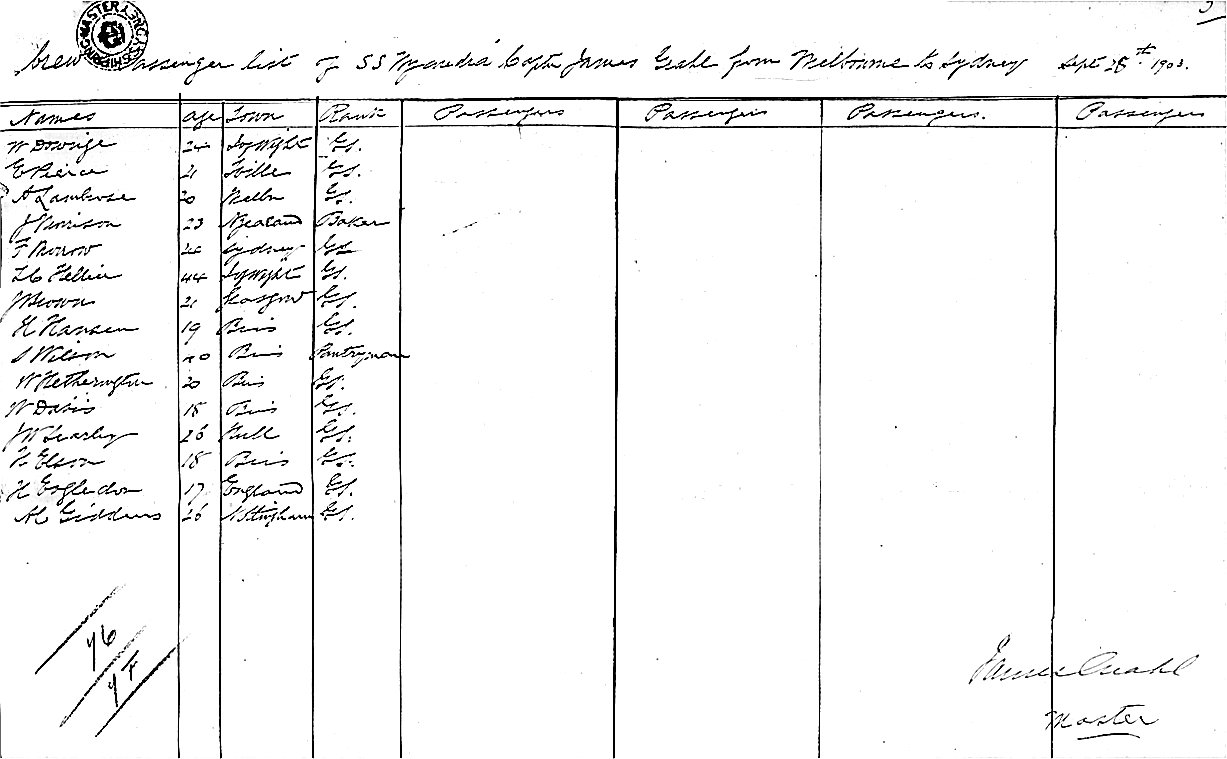 SHIPPING MASTER SYDNEY
3
Crew & Passenger list of SS Wyandra Captn James Grahl from Melbourne to Sydney Sept 28th 1903.
Names age Town Rank Passengers Passengers Passengers. Passengers
W 24 IofWight GS.
E Pierce 21 Tville GS.
A Lambrose 20 Melbn GS.
J Morrison 23 NZealand Baker
F Morrow Sydney GS
Hellier 44 IofWight GS.
J Brown 21 Glasgow GS.
H Hansen 19 Bris GS.
S Wilson Bris Pantryman
W Hetherington 20 Bris GS.
W Davis 18 Bris GS.
JW Searley 26 Hull GS.
H Elson 18 Bris GS.
H 17 England GS.
Giddens 26 Nottingham GS.
76
James Grahl
Master